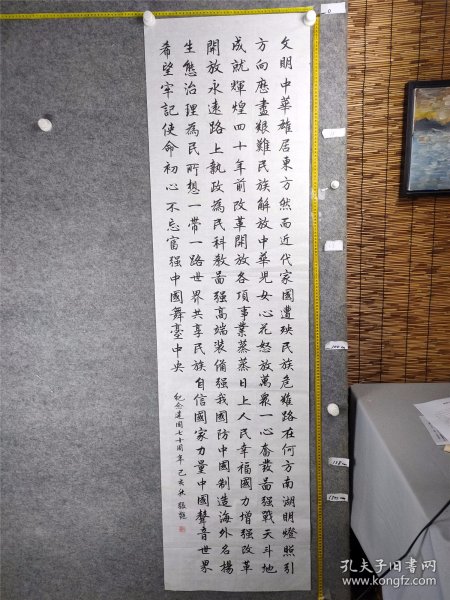 文明中華雄居東方然而近代家國遭殃民族危難路在何方南湖明燈照引
方向歷盡艱難民族解放中華兒女心花怒放萬眾一心奮發圖強戰天斗地
成就輝煌四十年前改革開放各項事業蒸蒸日上人民幸福國力增強改革
開放永遠路上執政為民科教圖强高端裝備强我國防中國制造海外名揚
生態治理為民所想一帶一路世界共享民族自信國家力量中國聲音世界
希望牢記使命初心不忘富强中國舞臺中央
紀念建國七十周年己亥秋張
孔夫子旧书网
www.kongfz.com